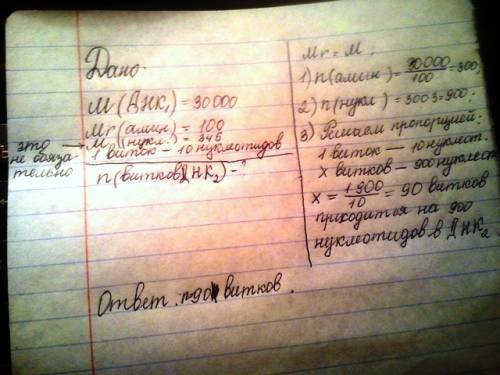 Дано:
M(ДНК₁) = 30000
Mr(амин) = 100
это не обяза-тельно → M нукл. = 345
1 виток – 10 нуклеотидов
n(витков ДНК₂) – ?
Mr = M.
1) n(амин) = 30000/100 = 300;
2) n(нукл) = 300·3 = 900;
3) Решаем пропорцией:
1 виток – 10 нуклеот.
X витков – 900 нуклеот
X = 1·900/10 = 90 витков
приходится на 900
нуклеотидов в ДНК₂.
Ответ: n=90 витков.